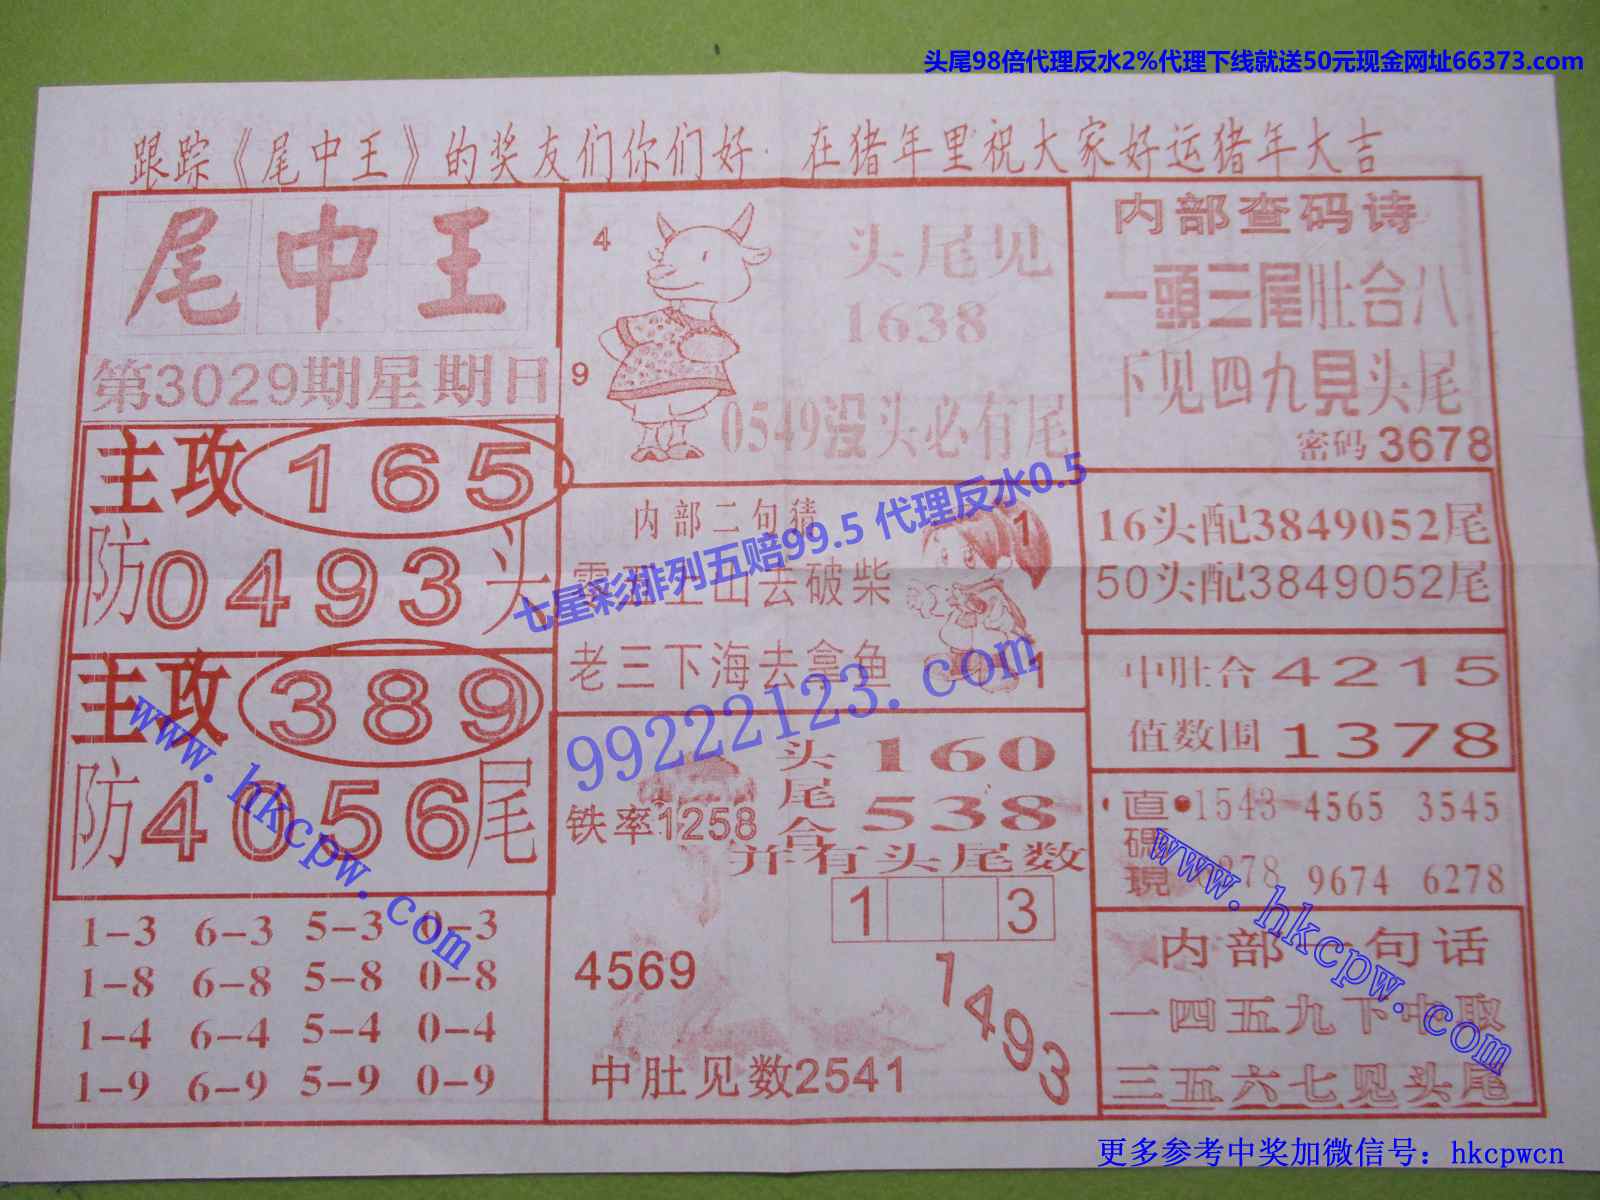 头尾98倍代理反水2%代理下线就送50元现金网址66373.com
跟踪《尾中王》的奖友们你们好 在猪年里祝大家好运猪年大吉
尾中王
第3029期星期日
主攻165
防0493头
主攻389
防4056尾
1-3 6-3 5-3 0-3
1-8 6-8 5-8 0-8
1-4 6-4 5-4 0-4
1-9 6-9 5-9 0-9
4
9
头尾见
1638
0549没头必有尾
内部二句猜
上山去破柴
老三下海去拿鱼
1
1
七星彩排列五赔99.5 代理反水0.5
99222123.com
头 160
尾 538
合
铁率1258
并有头尾数
1 3
4569
1493
中肚见数2541
内部查码诗
一頭三尾肚合八
下见四九見头尾
密码 3678
16头配3849052尾
50头配3849052尾
中肚合4215
值数围1378
直碼現
1543 4565 3545
878 9674 6278
内部一句话
一四五九下中取
三五六七见头尾
www.hkcpw.com
www.hkcpw.com
更多参考中奖加微信号：hkcpwcn